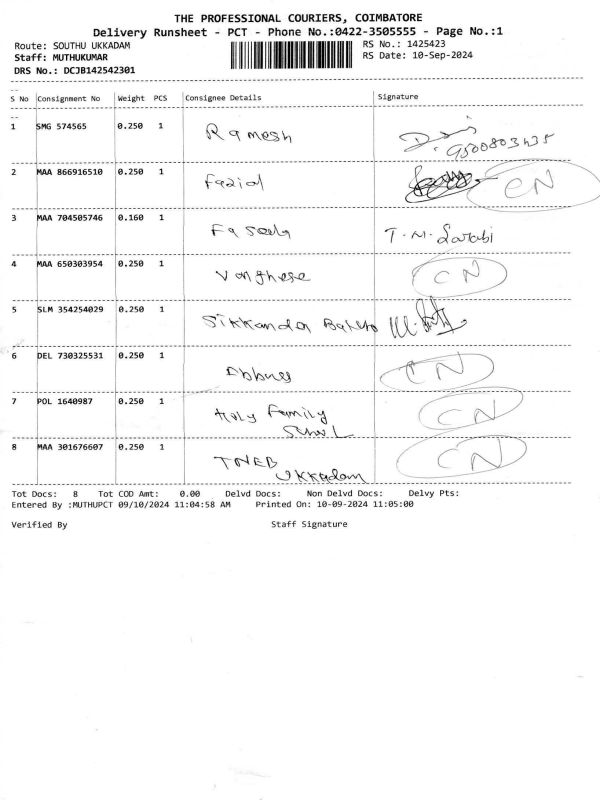 THE PROFESSIONAL COURIERS, COIMBATORE
Delivery Runsheet - PCT - Phone No.:0422-3505555 - Page No.:1
Route: SOUTHU UKKADAM RS No.: 1425423
Staff: MUTHUKUMAR RS Date: 10-Sep-2024
DRS No.: DCJB142542301
S No Consignment No Weight PCS Consignee Details Signature
1 SMG 574565 0.250 1 Ramesh
2 MAA 866916510 0.250 1 Fazial CN
3 MAA 704505746 0.160 1 Faseela T.M.
4 MAA 650303954 0.250 1 Varghese CN
5 SLM 354254029 0.250 1 Sikkandar
6 DEL 730325531 0.250 1 CN
7 POL 1640987 0.250 1 Holy Family CN
School
8 MAA 301676607 0.250 1 TNEB CN
Ukkadam
Tot Docs: 8 Tot COD Amt: 0.00 Delvd Docs: Non Delvd Docs: Delvy Pts:
Entered By :MUTHUPCT 09/10/2024 11:04:58 AM Printed On: 10-09-2024 11:05:00
Verified By Staff Signature